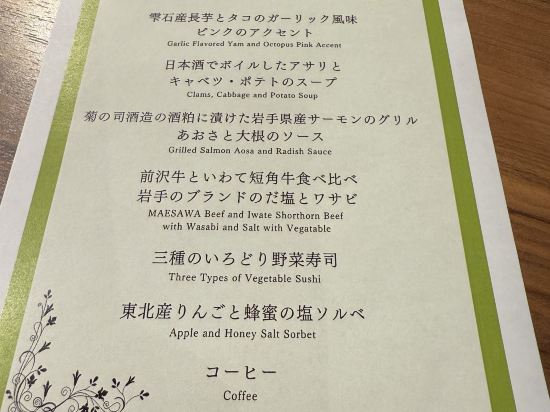 雫石産長芋とタコのガーリック風味
ピンクのアクセント
Garlic Flavored Yam and Octopus Pink Accent
日本酒でボイルしたアサリと
キャベツ・ポテトのスープ
Clams, Cabbage and Potato Soup
菊の司酒造の酒粕に漬けた岩手県産サーモンのグリル
あおさと大根のソース
Grilled Salmon Aosa and Radish Sauce
前沢牛といわて短角牛食べ比べ
岩手のブランドのだ塩とワサビ
MAESAWA Beef and Iwate Shorthorn Beef
with Wasabi and Salt with Vegatable
三種のいろどり野菜寿司
Three Types of Vegetable Sushi
東北産りんごと蜂蜜の塩ソルベ
Apple and Honey Salt Sorbet
コーヒー
Coffee